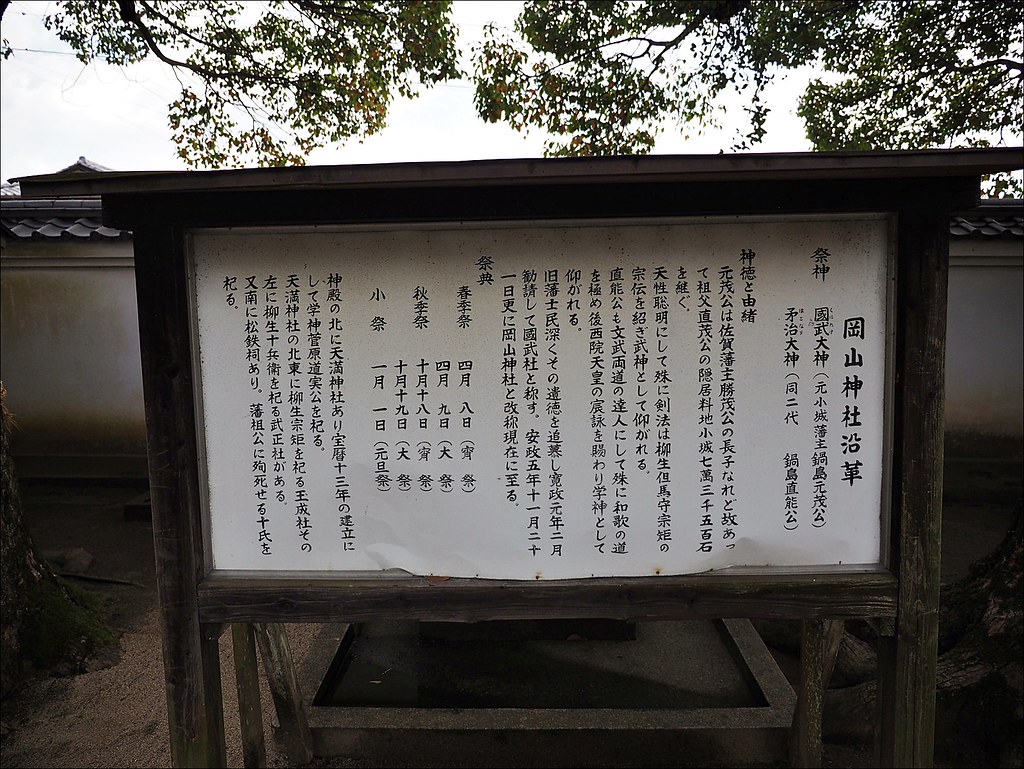 岡山神社沿革
祭神 國武大神(元小城藩主鍋島元茂公)
矛治大神(同二代 鍋島直能公)
神徳と由緒
元茂公は佐賀藩主勝茂公の長子なれど故あっ
て祖父直茂公の隠居料地小城七萬三千五百石
を継ぐ。
天性聡明にして殊に剣法は柳生但馬守宗矩の
宗伝を紹ぎ武神として仰がれる。
直能公も文武両道の達人にして殊に和歌の道
を極め後西院天皇の宸詠を賜わり学神として
仰がれる。
旧藩士民深くその遺徳を追慕し寛政元年二月
勧請して國武社と称す。安政五年十一月二十
一日更に岡山神社と改称現在に至る。
祭典
春季祭 四月 八日(宵 祭)
四月 九日(大 祭)
秋季祭 十月十八日(宵 祭)
十月十九日(大 祭)
小 祭 一月 一日(元旦祭)
神殿の北に天満神社あり宝暦十三年の建立に
して学神菅原道実公を祀る。
天満神社の北東に柳生宗矩を祀る王成社その
左に柳生十兵衛を祀る武正社がある。
又南に松鉄祠あり。藩祖公に殉死せる十氏を
祀る。